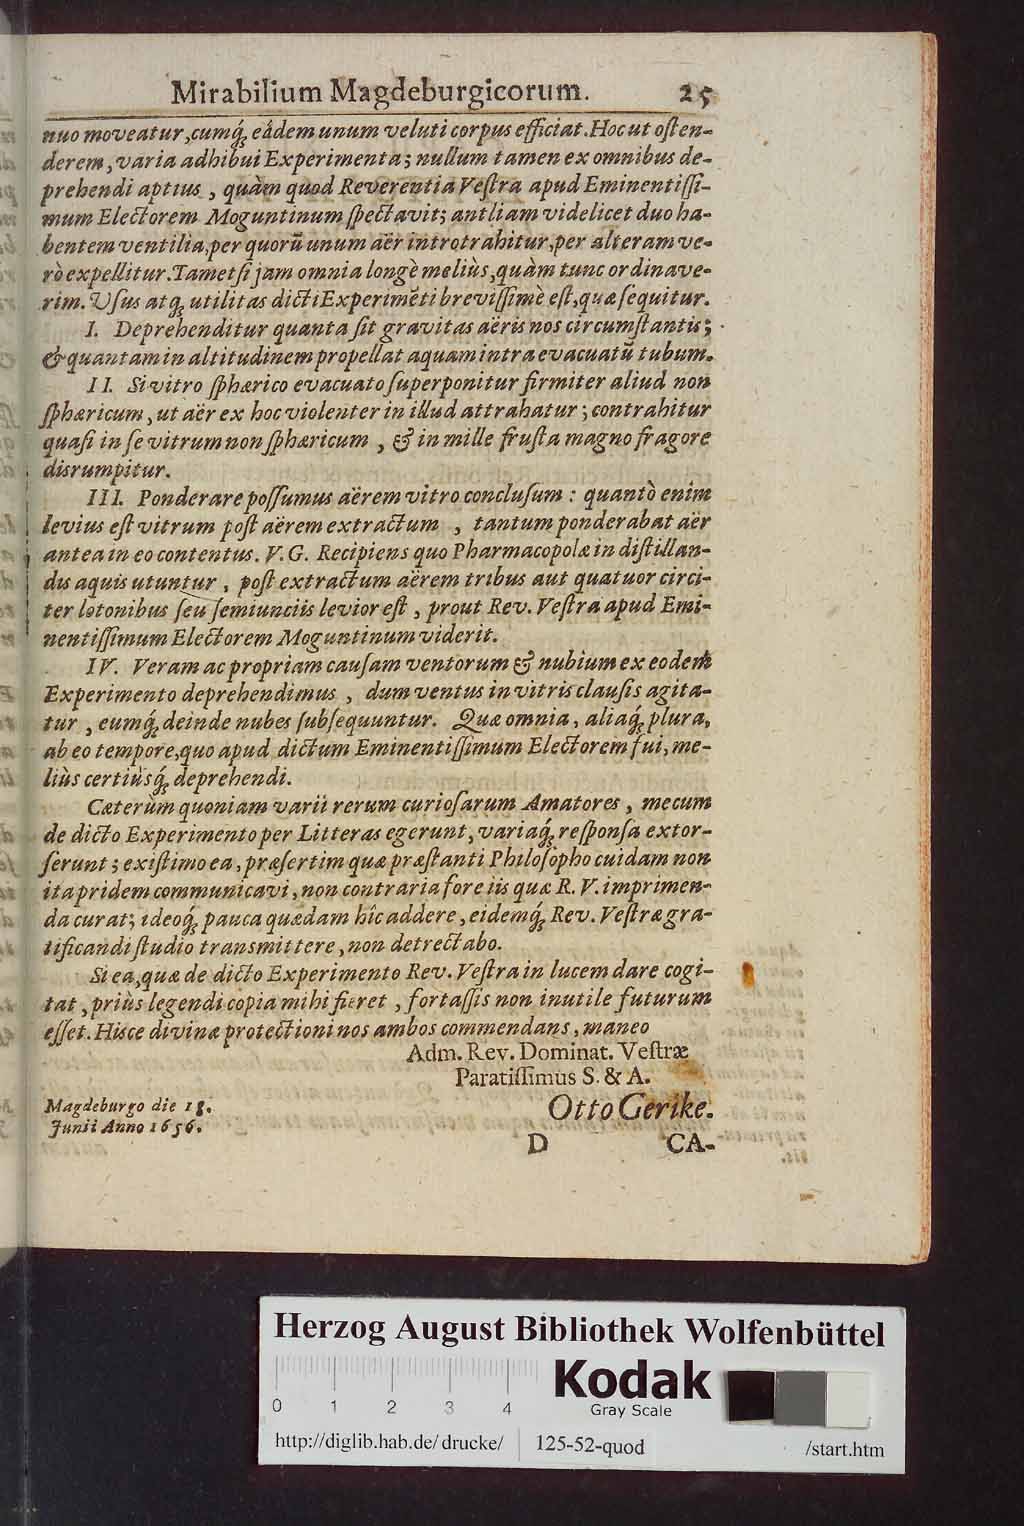 Mirabilium Magdeburgicorum. 25
nuo moveatur, cumq́; eâdem unum veluti corpus efficiat. Hoc ut oſten-
derem, varia adhibui Experimenta; nullum tamen ex omnibus de-
prehendi aptius, quàm quod Reverentia Veſtra apud Eminentiſſi-
mum Electorem Moguntinum ſpectavit; antliam videlicet duo ha-
bentem ventilia, per quorũ unum aër introtrahitur, per alteram ve-
rò expellitur. Tametſi jam omnia longè meliùs, quàm tunc ordinave-
rim. Uſus atq; utilitas dicti Experimẽti breviſſimè eſt, quæ ſequitur.
I. Deprehenditur quanta ſit gravitas aëris nos circumſtantis;
& quantam in altitudinem propellat aquam intra evacuatũ tubum.
II. Si vitro ſphærico evacuato ſuperponitur firmiter aliud non
ſphæricum, ut aër ex hoc violenter in illud attrahatur; contrahitur
quaſi in ſe vitrum non ſphæricum, & in mille fruſta magno fragore
disrumpitur.
III. Ponderare poſſumus aërem vitro concluſum: quantò enim
levius eſt vitrum poſt aërem extractum, tantum ponderabat aër
antea in eo contentus. V. G. Recipiens quo Pharmacopolæ in diſtillan-
dis aquis utuntur, poſt extractum aërem tribus aut quatuor circi-
ter lotonibus ſeu ſemiunciis levior eſt, prout Rev. Veſtra apud Emi-
nentiſſimum Electorem Moguntinum viderit.
IV. Veram ac propriam cauſam ventorum & nubium ex eodem
Experimento deprehendimus, dum ventus in vitris clauſis agita-
tur, eumq́; deinde nubes ſubſequuntur. Quæ omnia, aliaq́; plura,
ab eo tempore, quo apud dictum Eminentiſſimum Electorem fui, me-
liùs certiùsq́; deprehendi.
Cæterùm quoniam varii rerum curioſarum Amatores, mecum
de dicto Experimento per Litteras egerunt, variaq́; reſponſa extor-
ſerunt; exiſtimo ea, præſertim quæ præſtanti Philoſopho cuidam non
ita pridem communicavi, non contraria fore iis quæ R. V. imprimen-
da curat; ideoq́; pauca quædam hîc addere, eidemq́; Rev. Veſtræ gra-
tificandi ſtudio transmittere, non detrectabo.
Si ea, quæ de dicto Experimento Rev. Veſtra in lucem dare cogi-
tat, priùs legendi copia mihi fieret, fortaſſis non inutile futurum
eſſet. Hisce divinæ protectioni nos ambos commendans, maneo
Adm. Rev. Dominat. Veſtræ
Paratiſſimus S. & A.
Otto Gerike.
Magdeburgo die 18.
Junii Anno 1656.
D CA-
Herzog August Bibliothek Wolfenbüttel
Kodak
Gray Scale
0 1 2 3 4
http://diglib.hab.de/drucke/ 125-52-quod /start.htm